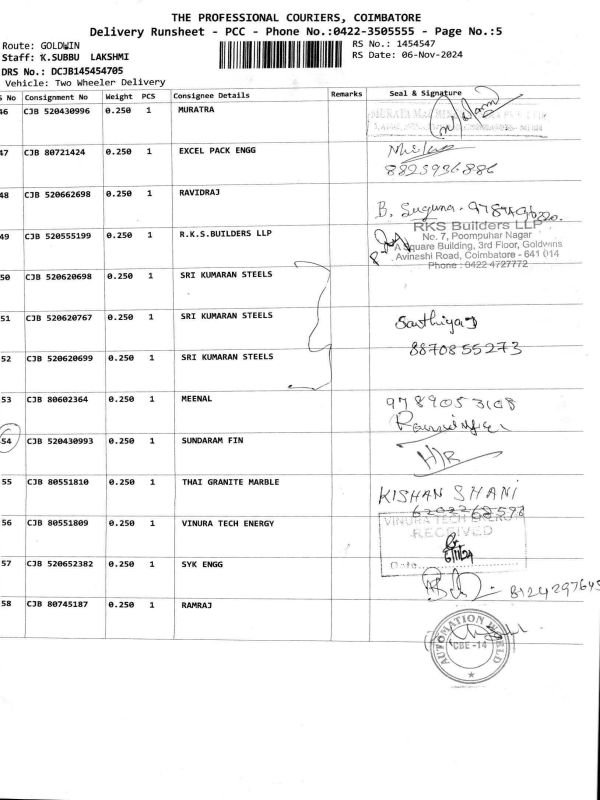 THE PROFESSIONAL COURIERS, COIMBATORE
Delivery Runsheet - PCC - Phone No.:0422-3505555 - Page No.:5
Route: GOLDWIN RS No.: 1454547
Staff: K.SUBBU LAKSHMI RS Date: 06-Nov-2024
DRS No.: DCJB145454705
Vehicle: Two Wheeler Delivery
S No Consignment No Weight PCS Consignee Details Remarks Seal & Signature
46 CJB 520430996 0.250 1 MURATRA
47 CJB 80721424 0.250 1 EXCEL PACK ENGG
8825936886
48 CJB 520662698 0.250 1 RAVIDRAJ
B. Suguna
49 CJB 520555199 0.250 1 R.K.S.BUILDERS LLP
RKS Builders LLP
No. 7, Poompuhar Nagar
A Square Building, 3rd Floor, Goldwins
Avinashi Road, Coimbatore - 641 014
Phone : 0422 4727772
50 CJB 520620698 0.250 1 SRI KUMARAN STEELS
51 CJB 520620767 0.250 1 SRI KUMARAN STEELS
Sathiya
52 CJB 520620699 0.250 1 SRI KUMARAN STEELS
8870855273
53 CJB 80602364 0.250 1 MEENAL
9789053108
54 CJB 520430993 0.250 1 SUNDARAM FIN
55 CJB 80551810 0.250 1 THAI GRANITE MARBLE
KISHAN SHANI
56 CJB 80551809 0.250 1 VINURA TECH ENERGY
VINURA TECH ENERGY
RECEIVED
Date
57 CJB 520652382 0.250 1 SYK ENGG
58 CJB 80745187 0.250 1 RAMRAJ
AUTOMATION WORLD
CBE -14